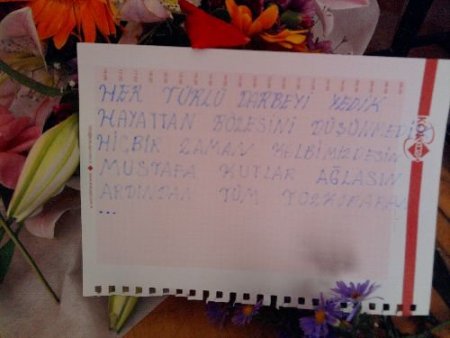 HER TÜRLÜ DARBEYİ YEDİK
HAYATTAN BÖLESİNİ DÜŞÜNMEDİK
HİÇBİR ZAMAN KELBİMİZDESİN
MUSTAFA KUTLAR AĞLASIN
ARDINDAN TÜM
...